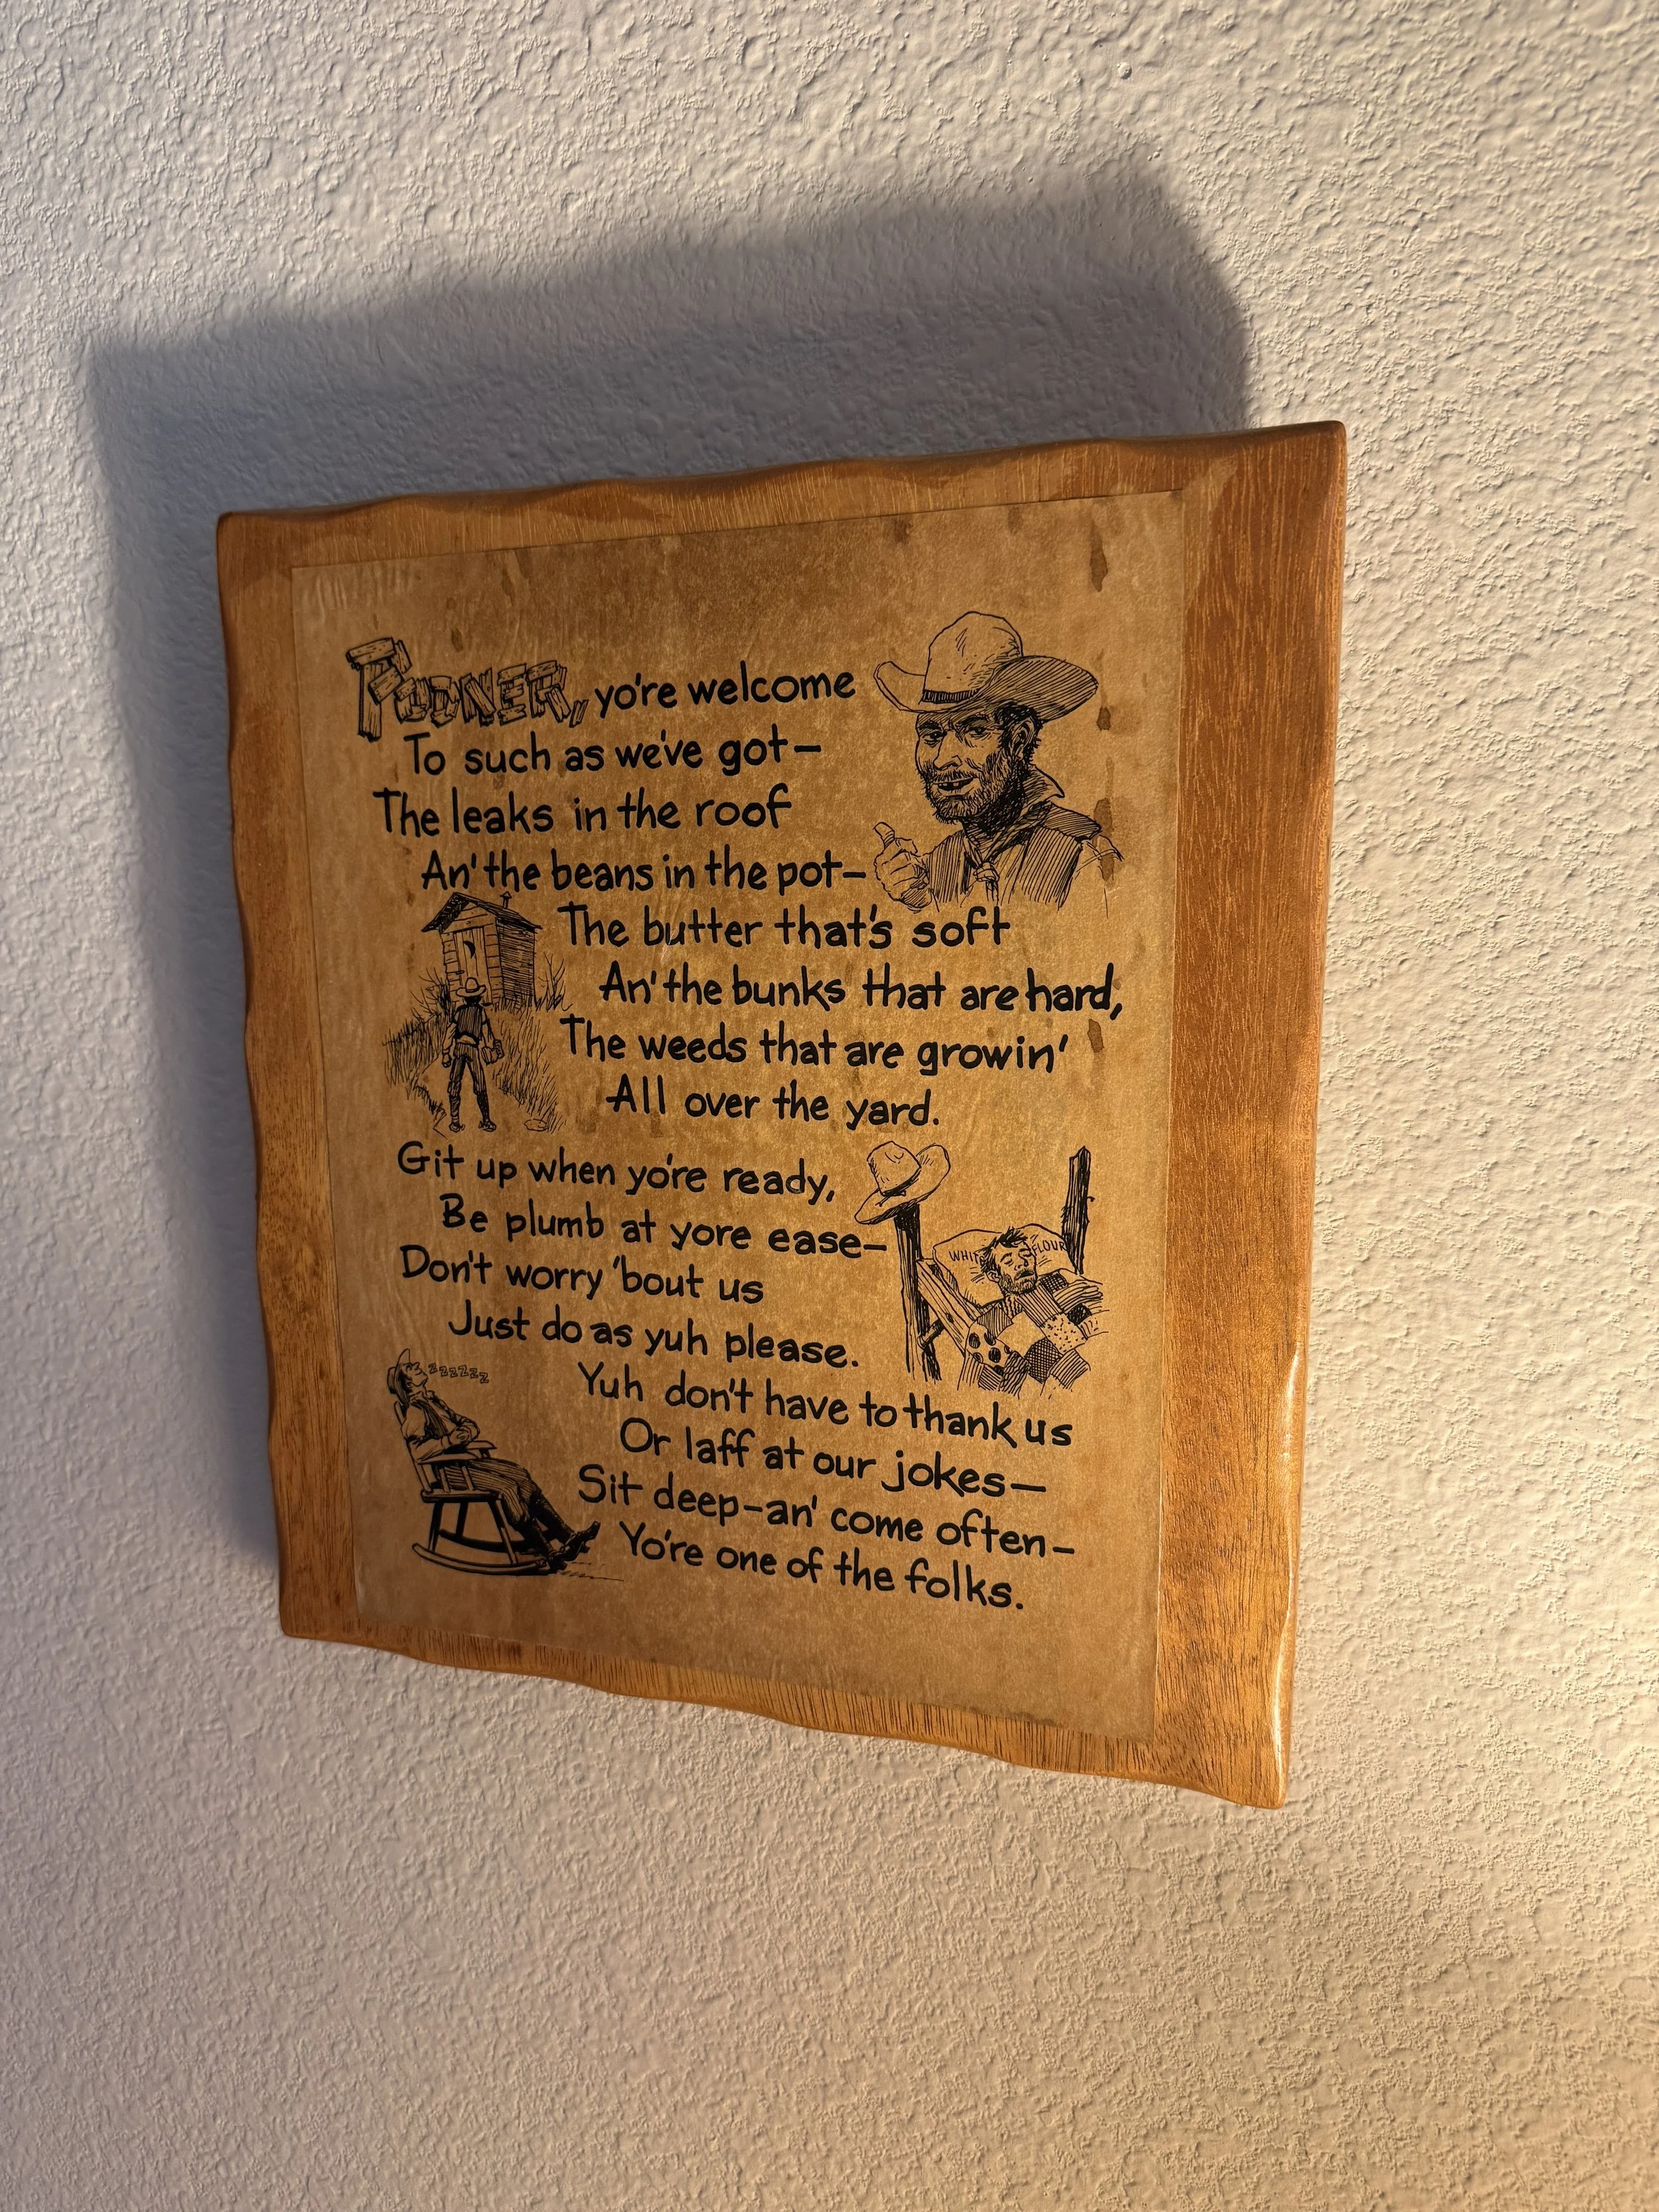 PODNER, yo're welcome
To such as we've got—
The leaks in the roof
An' the beans in the pot—
The butter that's soft
An' the bunks that are hard,
The weeds that are growin'
All over the yard.
Git up when yo're ready,
Be plumb at yore ease—
WHITE FLOUR
Don't worry 'bout us
Just do as yuh please.
zzzzzz
Yuh don't have to thank us
Or laff at our jokes—
Sit deep—an' come often—
Yo're one of the folks.